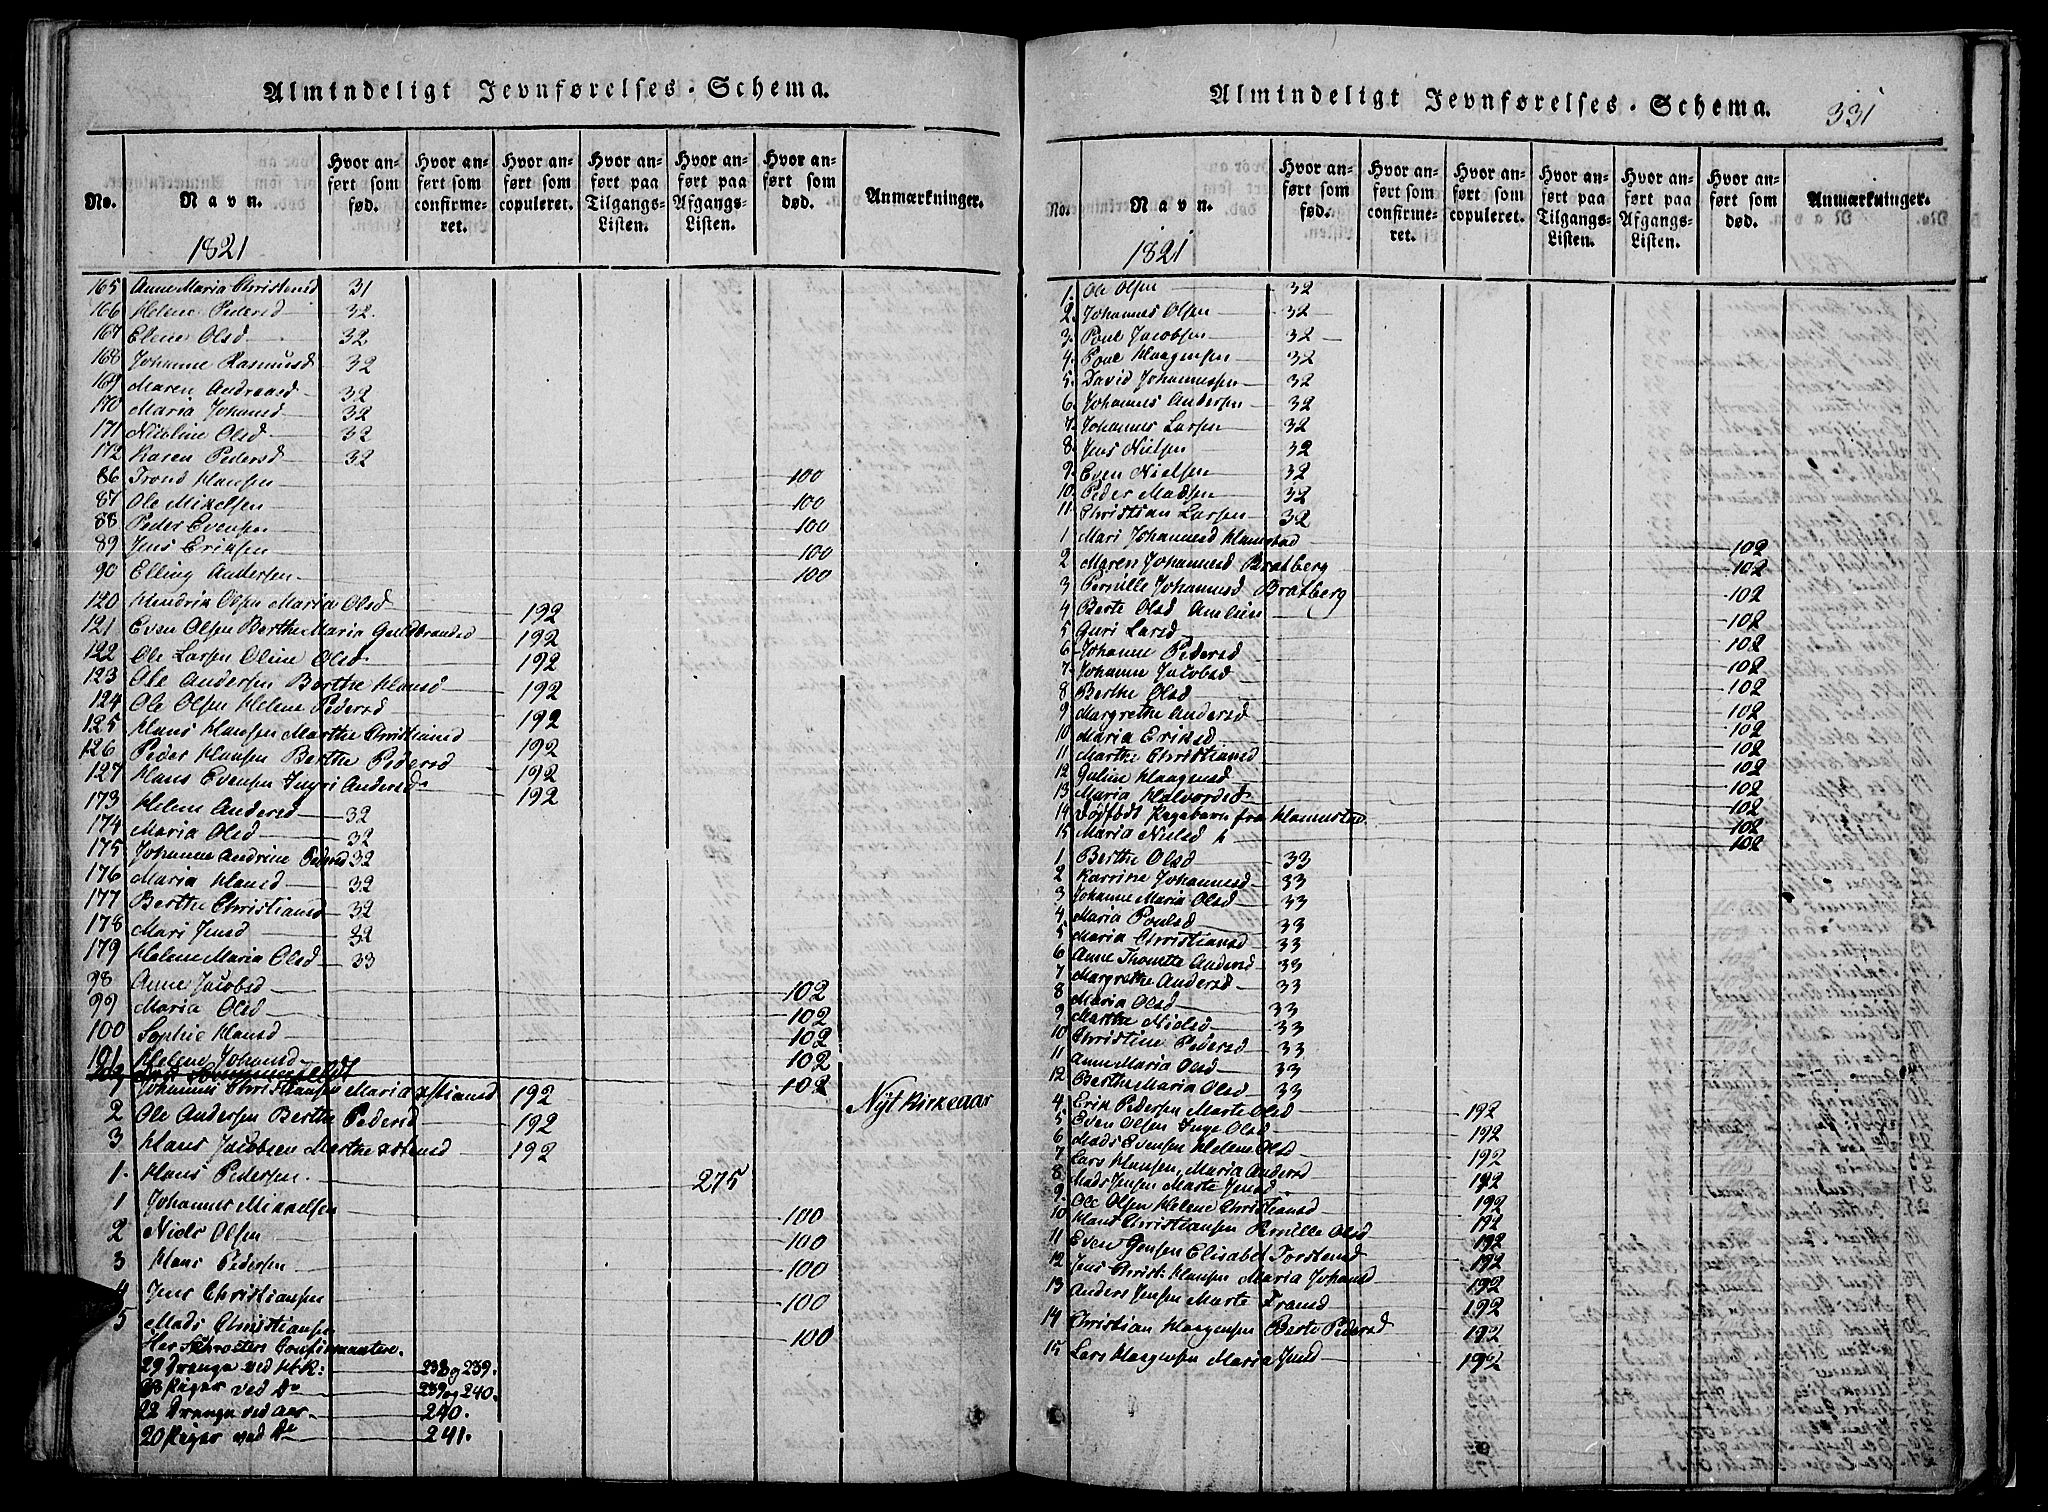 Almindeligt Jevnførelses-Schema.
No.
Navn.
1821
Hvor anført som fød.
Hvor anført som confirmeret.
Hvor anført som copuleret.
Hvor anført paa Tilgangs-Listen.
Hvor anført paa Afgangs-Listen.
Hvor anført som død.
Anmærkninger.
165 Anne Maria Christensd 31
166 Helene Pedersd 32
167 Elene Olsd 32
168 Johanne Rasmusd 32
169 Maren Andreasd 32
170 Maria Johansd 32
171 Nicoline Olsd 32
172 Karen Pedersd 32
86 Trond Hansen 100
87 Ole Mikelsen 100
88 Peder Evensen 100
89 Jens Eriksen 100
90 Elling Andersen 100
120 Hendrik Olsen Maria Olsd 192
121 Even Olsen Berthe Maria Guldbrandsd 192
122 Ole Larsen Oline Olsd 192
123 Ole Andersen Berthe Hansd 192
124 Ole Olsen Helene Pedersd 192
125 Hans Hansen Marthe Christiansd 192
126 Peder Hansen Berthe Pedersd 192
127 Hans Evensen Ingri Andersd 192
173 Helene Andersd 32
174 Maria Olsd 32
175 Johanne Andrine Pedersd 32
176 Maria Hansd 32
177 Berthe Christiansd 32
178 Mari Jensd 32
179 Helene Maria Olsd 33
98 Anne Jacobsd 102
99 Maria Olsd 102
100 Sophie Hansd 102
101 Helene Johansd 102
1 Johannes Christiansen Maria xstiansd 192 102
Nyt Kirkeaar
2 Ole Andersen Berthe Pedersd 192
3 Hans Jacobsen Marthe xstensd 192
1. Hans Pedersen 275
1 Johannes Mikkelsen 100
2 Niels Olsen 100
3 Hans Pedersen 100
4 Jens Christiansen 100
5 Mads Christiansen 100
Her Schrøters Confirmantere.
29 Drenge ved H.K: 238 og 239.
23 Piger ved Do 239 og 240.
22 Drenge ved Aas 240.
20 Piger ved Do 241.
Almindeligt Jevnførelses-Schema.
331
No.
Navn.
1821
Hvor anført som fød.
Hvor anført som confirmeret.
Hvor anført som copuleret.
Hvor anført paa Tilgangs-Listen.
Hvor anført paa Afgangs-Listen.
Hvor anført som død.
Anmærkninger.
1. Ole Olsen 32
2. Johannes Olsen 32
3. Poul Jacobsen 32
4. Poul Haagensen 32
5. David Johannessen 32
6. Johannes Andersen 32
7. Johannes Larsen 32
8. Jens Nielsen 32
9. Even Nielsen 32
10. Peder Madsen 32
11. Christian Larsen 32
1 Mari Johannesd Hamstad 102
2 Maren Johannesd Bratberg 102
3 Pernille Johannesd Bratberg 102
4 Berte Olsd Amlien 102
5 Guri Larsd 102
6 Johanne Pedersd 102
7 Johanne Jacobsd 102
8 Berthe Olsd 102
9 Margrethe Andersd 102
10 Maria Eriksd 102
11 Marthe Christiansd 102
12 Guline Haagensd 102
13 Maria Halvorsd 102
14 Dødfødt Pigebarn fra Hammestad 102
15 Maria Nielsd 102
1 Berthe Olsd 33
2 Karrine Johannesd 33
3 Johanne Maria Olsd 33
4 Maria Poulsd 33
5 Maria Christiansd 33
6 Anne Thonette Andersd 33
7 Margrethe Andersd 33
8 Maria Olsd 33
9 Marthe Nielsd 33
10 Christine Pedersd 33
11 Anne Maria Olsd 33
12 Berthe Maria Olsd 33
4 Erik Pedersen Marte Olsd 192
5 Even Olsen Inge Olsd 192
6 Mads Evensen Helene Olsd 192
7 Lars Hansen, Maria Andersd 192
8 Mads Jensen Marte Jensd 192
9. Ole Olsen Helene Christiansd 192
10 Hans Christiansen Pernille Olsd 192
11 Even Jensen Elisabet Torstensd 192
12 Jens Christ: Hansen Maria Johansd 192
13 Anders Jensen Marte Fransd 192
14 Christian Haagensen Berte Pedersd 192
15 Lars Haagensen Maria Jensd 192